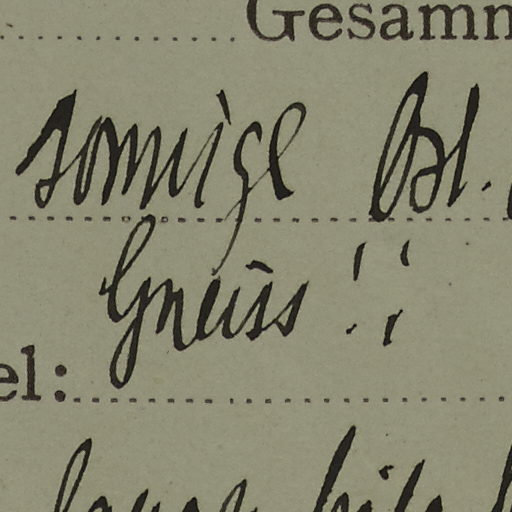 Gesamm
sonnige Bl.
Gneiss!!
el: